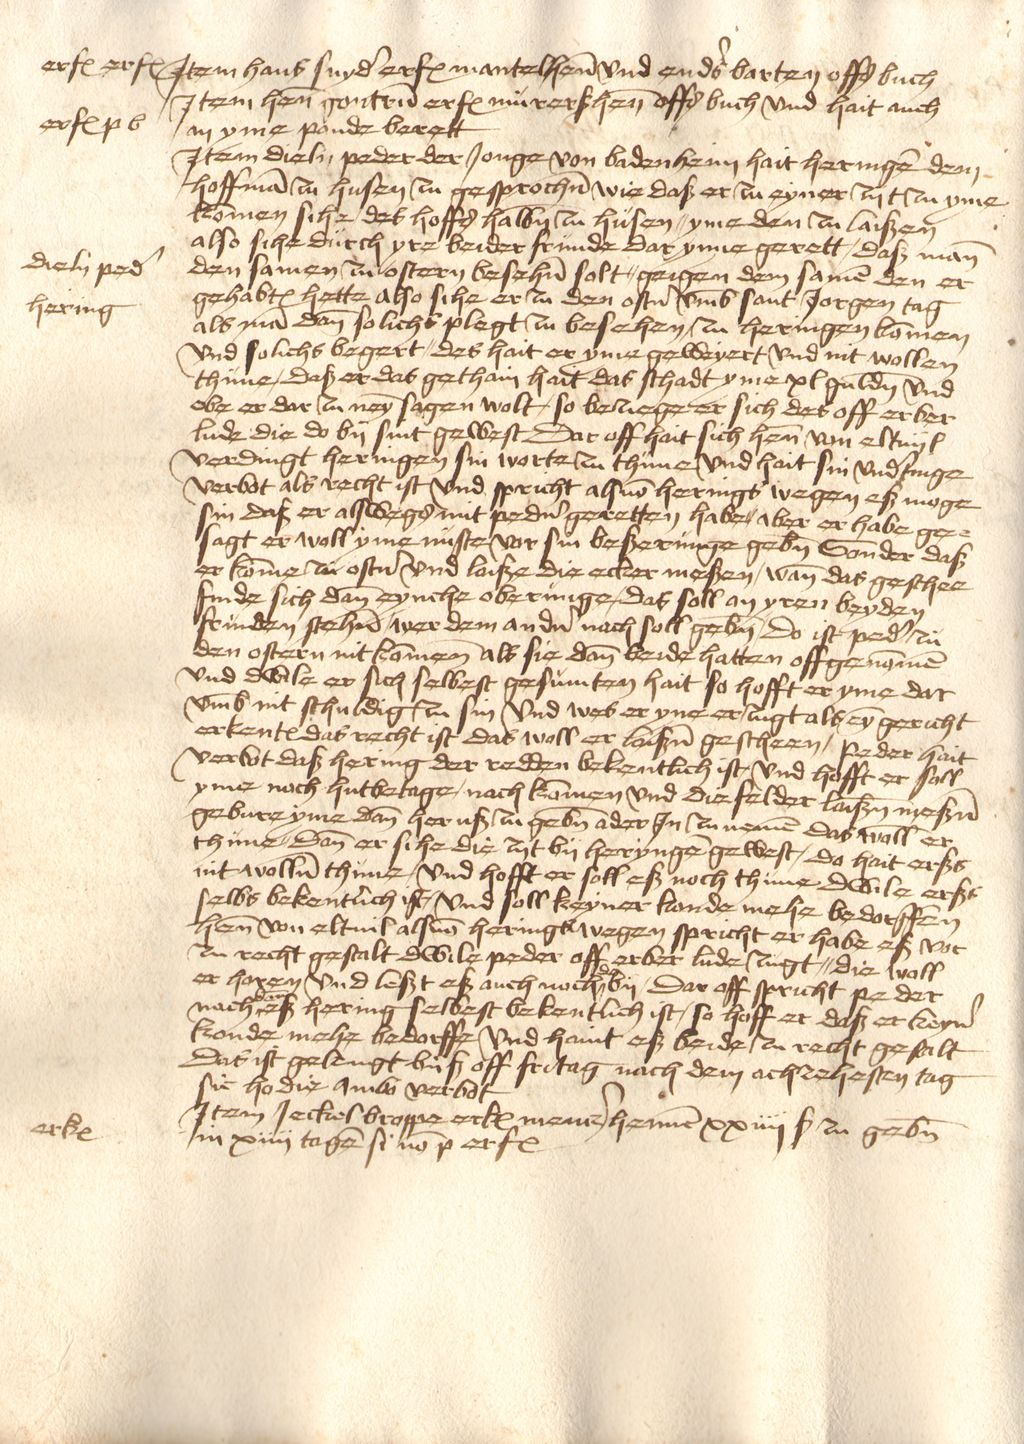 erf erf Item hans snyd' erf mantelhen vnd endrs barten off s buch
Item hen gontrū erf mūrerßhen off s buch vnd hait auch
erf p b
an yme ponde berett
Item dieln peder der Jonge von badenheim hait heringē dem
hoffmā zu husen zu gesprochn wie daß er zu eyner zijt zu yme
kōmen sihe des hoffs halbn zu hūsen yme den zu laißen
also sihe dūrch yre beider frunde dar ynne gerett daß man
dieln ped'
den samen zu ostern besehn solt geigen dem samē den er
hering
gehabt hette also sihe er zu den ostn vmb sant Jorgen tag
als mā dan solichs plegt zu besehen zu heringen kōmen
vnd solichs begert des hait er yme geweyert vnd nit wollen
thūne daß er das gethain hait das schadt yme xl guldn vnd
obe er dar zu ney sagen wolt so beziege er sich des off erber
lude die do bij sint gewest Dar off hait sich hen von eltuil
verdingt heringen sin worte zu thūne vnd hait sin vnd'singe
verbot als recht ist vnd spricht alsuō herings wegen eß moge
sin daß er alßwege mit pedn geretten habe Aber er habe ge=
sagt er woll yme nūste vor sin beßerūnge gebn Sonder daß
er kōme zu ostn vnd laiße die ecker meßen wan das geschee
finde sich dan eynche oberūnge das soll an yren beyden
frūnden stehn wer dem andn nach soll gebn Do ist ped' zu
den ostern nit kōmen als sie dan beide hatten offgenōmē
vnd dwile er sich selbest gesumten hait so hofft er yme dar
vmb nit schuldig zu sin vnd wes er yne erzugt als ey gericht
erkent das recht ist das woll er laißn gescheen Peder hait
verbot daß hering der redden bekentlich ist vnd hofft er soll
yme noch hutbetage nach kōmen vnd die felder laißn meßen
gebure yme dan heruß zu gebn ader In zu nemē das woll er
thūne Dan er sihe die zijt bij heryngē gewest do hait erßs
nit wolln thūne vnd hofft er soll eß noch thūne dwile erßs
selbs bekentlich ist vnd soll keyner konde mehe bedorffen
hen von eltuil alsuō herings wegen spricht er habe eß vor
zu recht gestalt dwile peder off erber lude zugt die woll
er horen vnd leßt eß auch noch do bij Dar off spricht peder
nach dem eß hering selbest bekentlich ist so hoff er daß er keyn
konde mehe bedorffe vnd haint eß beide zu recht gestalt
Das ist gelengt bijß off fritag nach dem achzehesten tag
sic hodie Ambo verbot
erk
Item Jeckel broppe erk hennē xxiiii ß zu gebn
in xiiii tagē si nō p erf